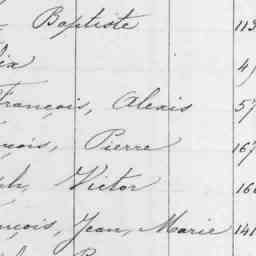 Baptiste 113
ix 4
François, Alexis 57
çois, Pierre 167
ph, Victor 16
nçois, Jean, Marie 141